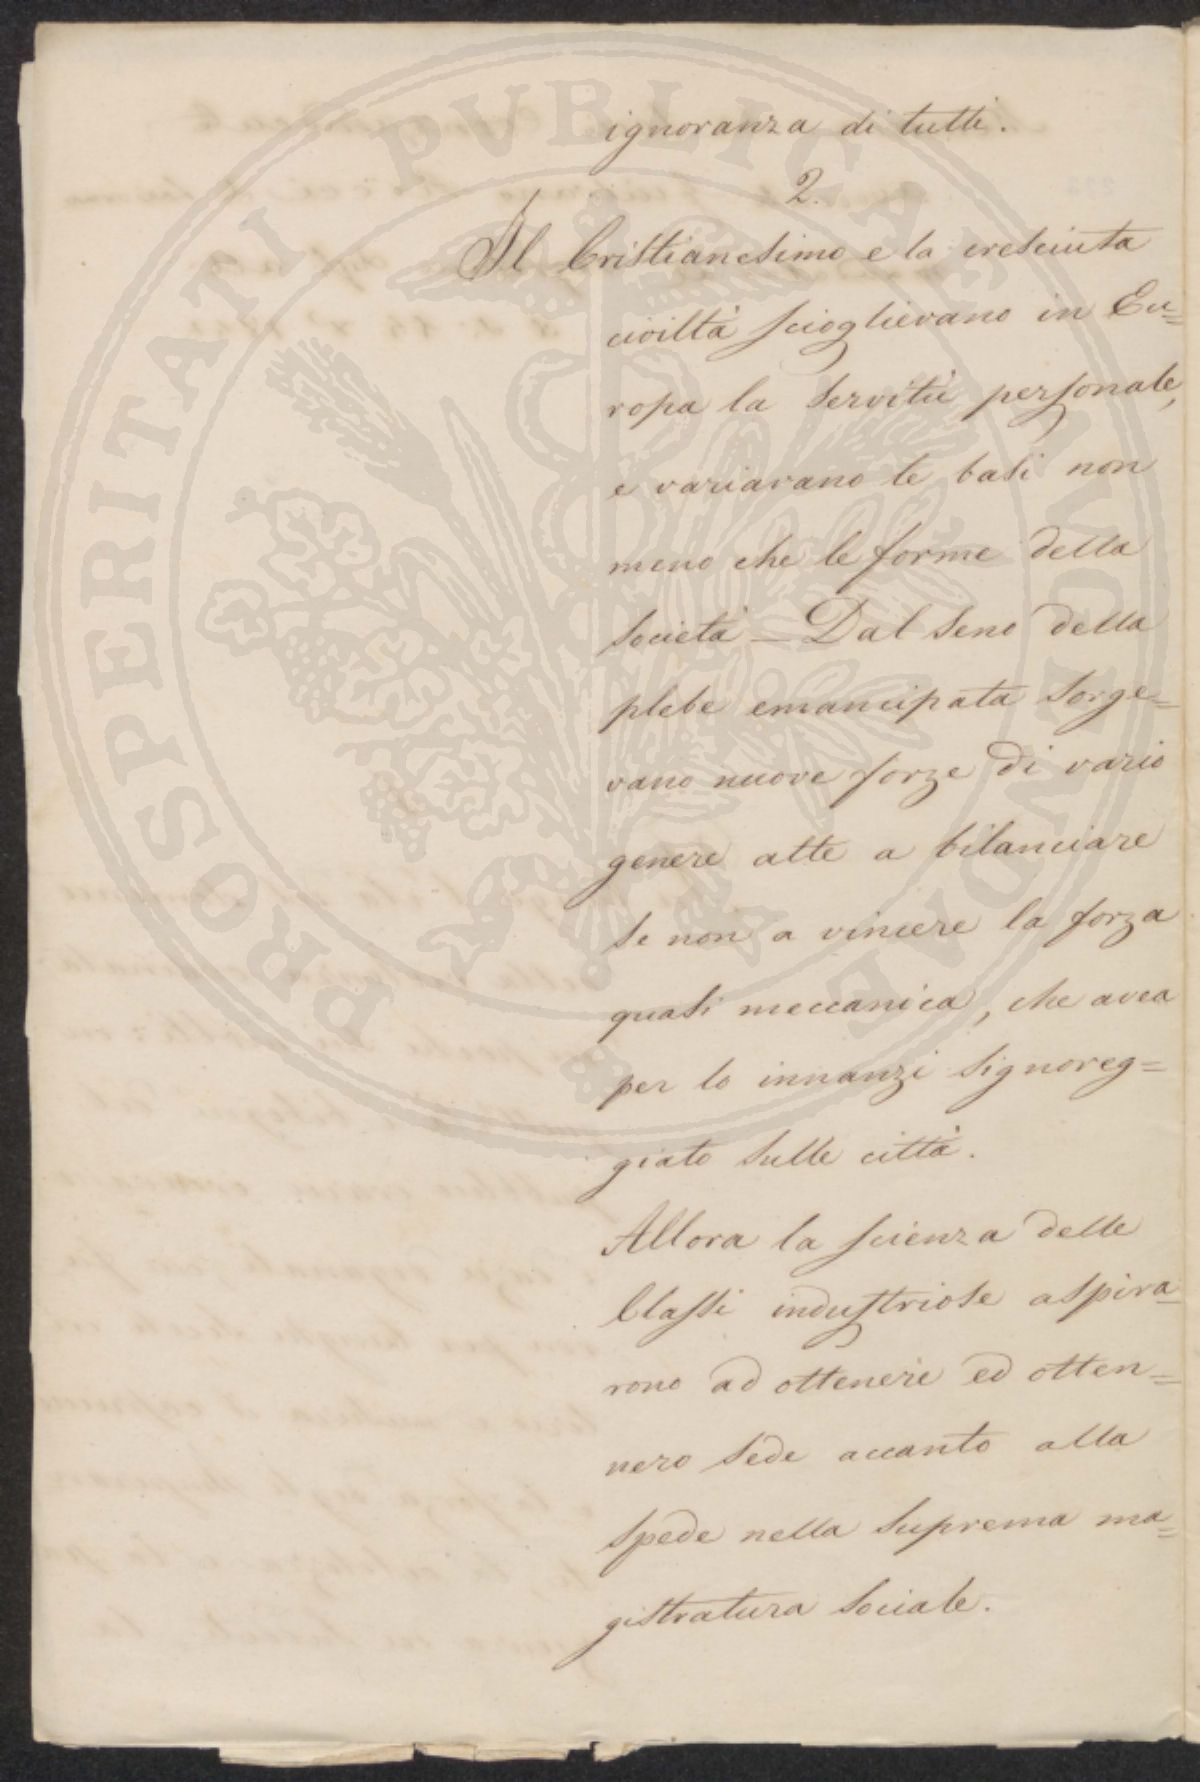 ignoranza di tutti.
2.
Il Cristianesimo e la cresciuta
civiltà scioglievano in Eu=
ropa la servitù personale,
e variavano le basi non
meno che le forme della
società – Dal seno della
plebe emancipata sorge=
vano nuove forze di vario
genere atte a bilanciare
se non a vincere la forza
quasi meccanica, che avea
per lo innanzi signoreg=
giato sulle città.
Allora la scienza delle
Classi industriose aspira=
rono ad ottenere ed otten=
nero sede accanto alla
spede nella suprema ma=
gistratura sociale.
PROSPERITATI PVBLICAE AVGENDAE